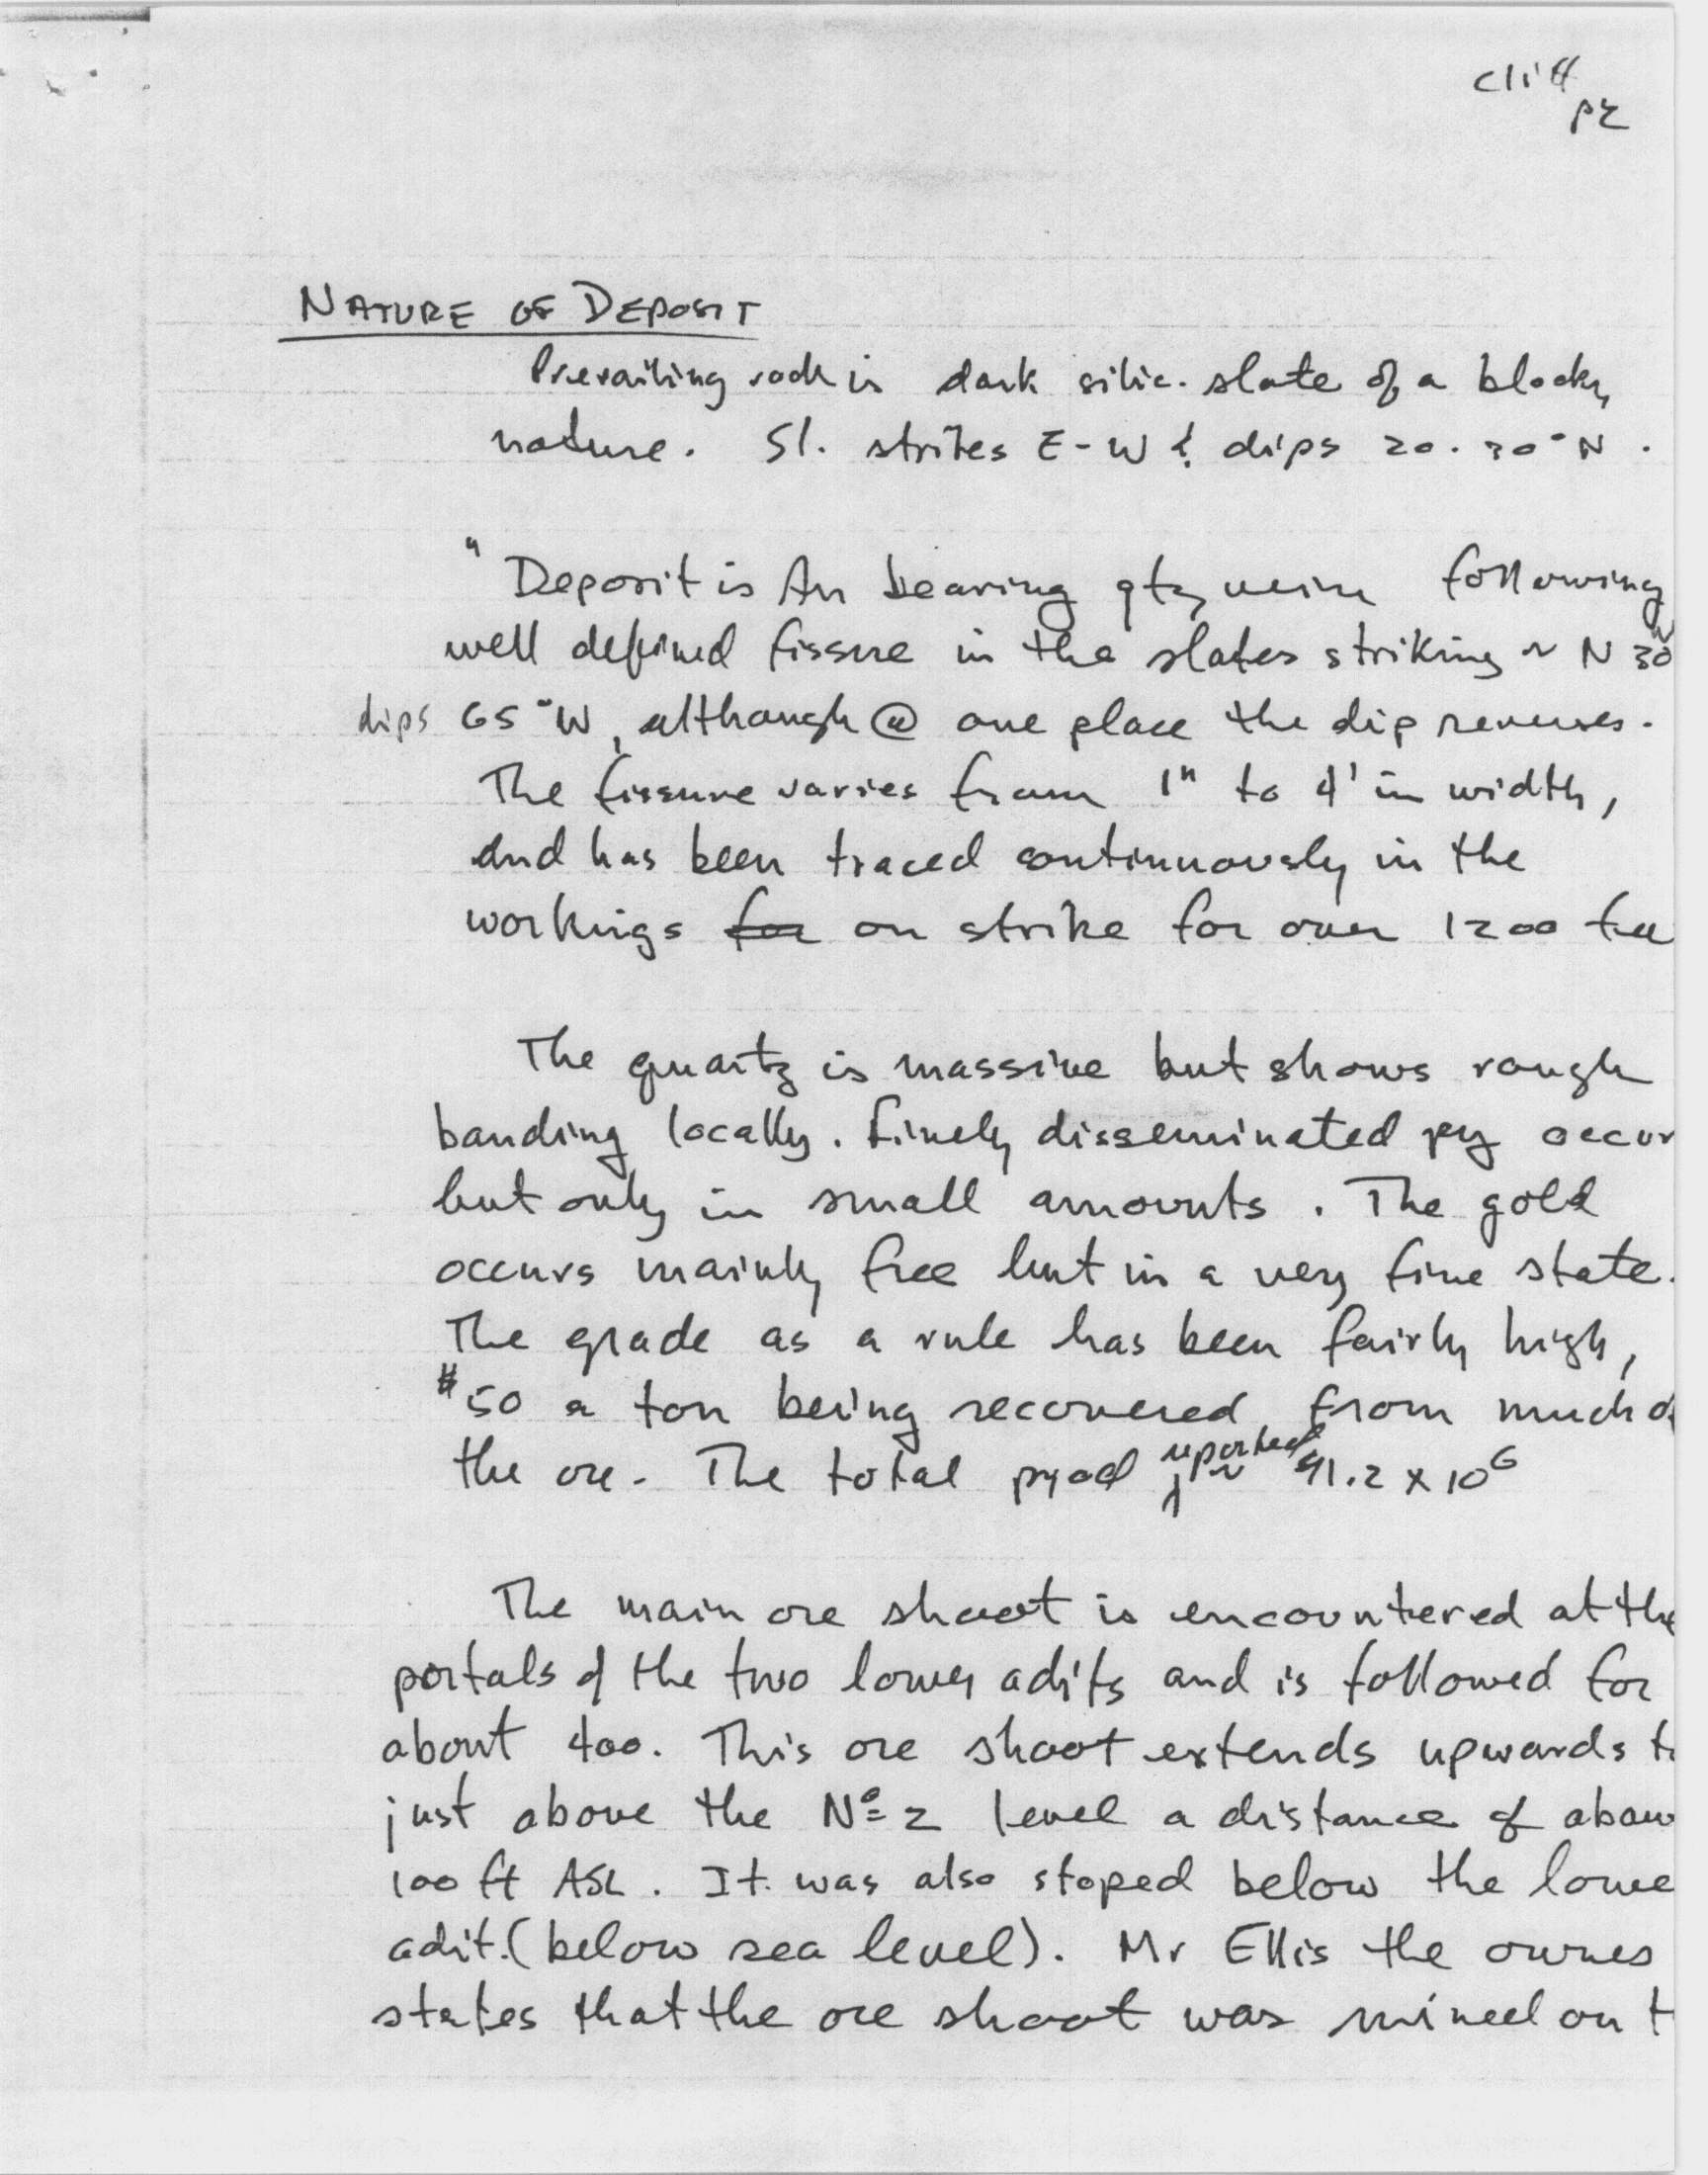 Cliff
p2
NATURE OF DEPOSIT
Prevailing rock is dark silic. slate of a blocky
nature. Sl. strikes E-W & dips 20-30° N.
"Deposit is Au bearing qtz vein following
well defined fissure in the slates striking ~ N 30 W
dips 65° W, although @ one place the dip reverses.
The fissure varies from 1" to 4' in width,
and has been traced continuously in the
workings for on strike for over 1200 fee
The quartz is massive but shows rough
banding locally. Finely disseminated py occur
but only in small amounts. The gold
occurs mainly free but in a very fine state.
The grade as a rule has been fairly high,
$50 a ton being recovered from much of
the ore. The total prod reported ~ $1.2 x 10⁶
The main ore shoot is encountered at the
portals of the two lower adits and is followed for
about 400. This ore shoot extends upwards t
just above the Nº 2 level a distance of abou
100 ft ASL. It was also stoped below the lowe
adit. (below sea level). Mr Ellis the owner
states that the ore shoot was mined out